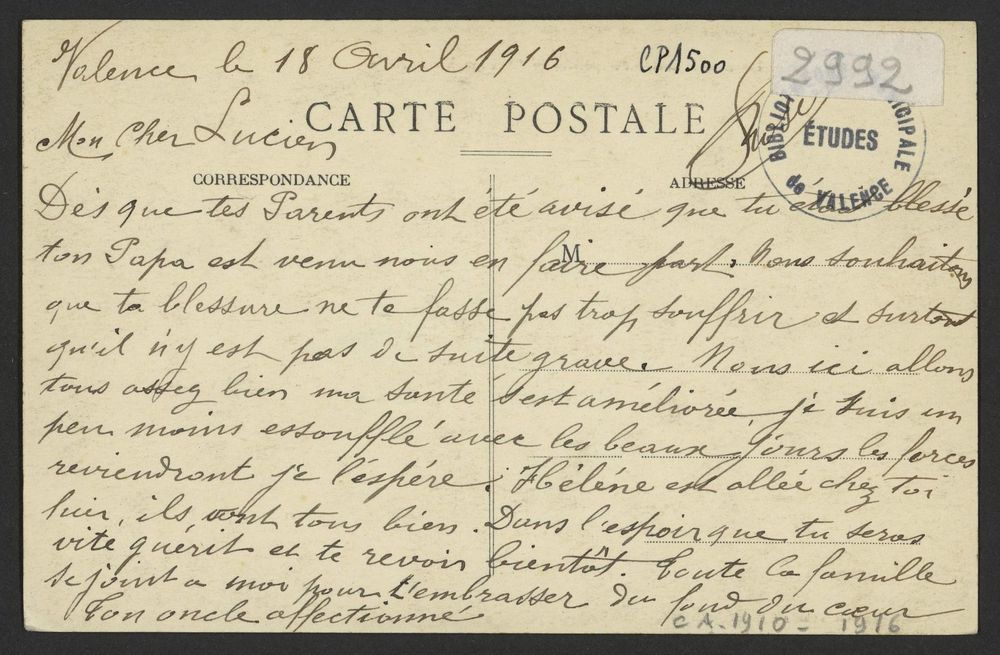 Valence le 18 Avril 1916
CPA500
2992
CARTE POSTALE
BIBLIOT MUNICIPALE
ÉTUDES
de VALENCE
Mon Cher Lucien
CORRESPONDANCE
ADRESSE
Dès que tes Parents ont été avisé que tu étais blessé
M
ton Papa est venu nous en faire part. Nous souhaitons
que ta blessure ne te fasse pas trop souffrir et surtout
qu'il n'y est pas de suite grave. Nous ici allons
tous assez bien ma santé s'est améliorée je suis un
peu moins essoufflé avec les beaux jours les forces
reviendront je l'espére. Hélène est allée chez toi
hier, ils vont tous bien. Dans l'espoir que tu seras
vite guérit et te revoir bientôt. Toute la famille
se joint a moi pour t'embrasser du fond du cœur
Ton oncle affectionné
CA-1910-1916